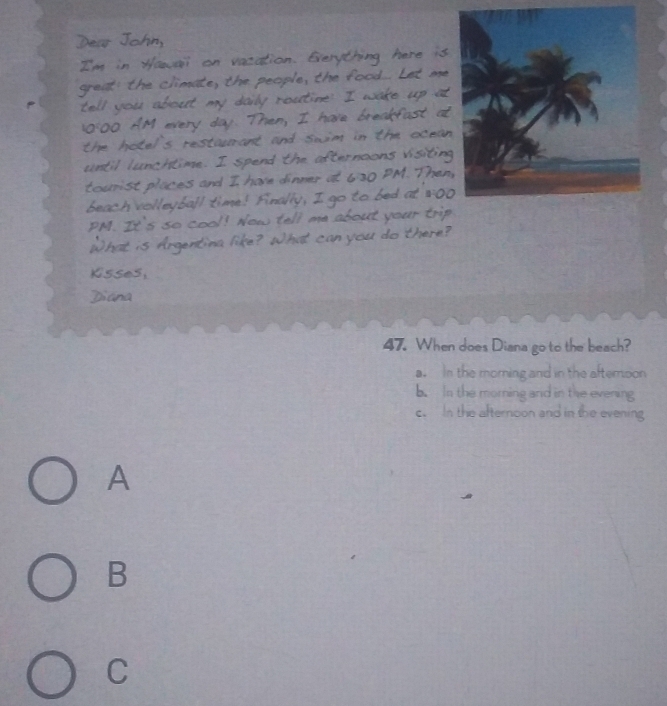 Dear John,
I'm in Hawaii on vacation. Everything here is
great: the climate, the people, the food... Let me
tell you about my daily routine: I wake up at
10:00 AM every day. Then, I have breakfast at
the hotel's restaurant and swim in the ocean
until lunchtime. I spend the afternoons visiting
tourist places and I have dinner at 6:30 PM. Then,
beach volleyball time! Finally, I go to bed at
PM. It's so cool! Now tell me about your trip
What is Argentina like? What can you do there?
Kisses,
Diana
47. When does Diana go to the beach?
a. In the morning and in the afternoon
b. In the morning and in the evening
c. In the afternoon and in the evening
A
B
C